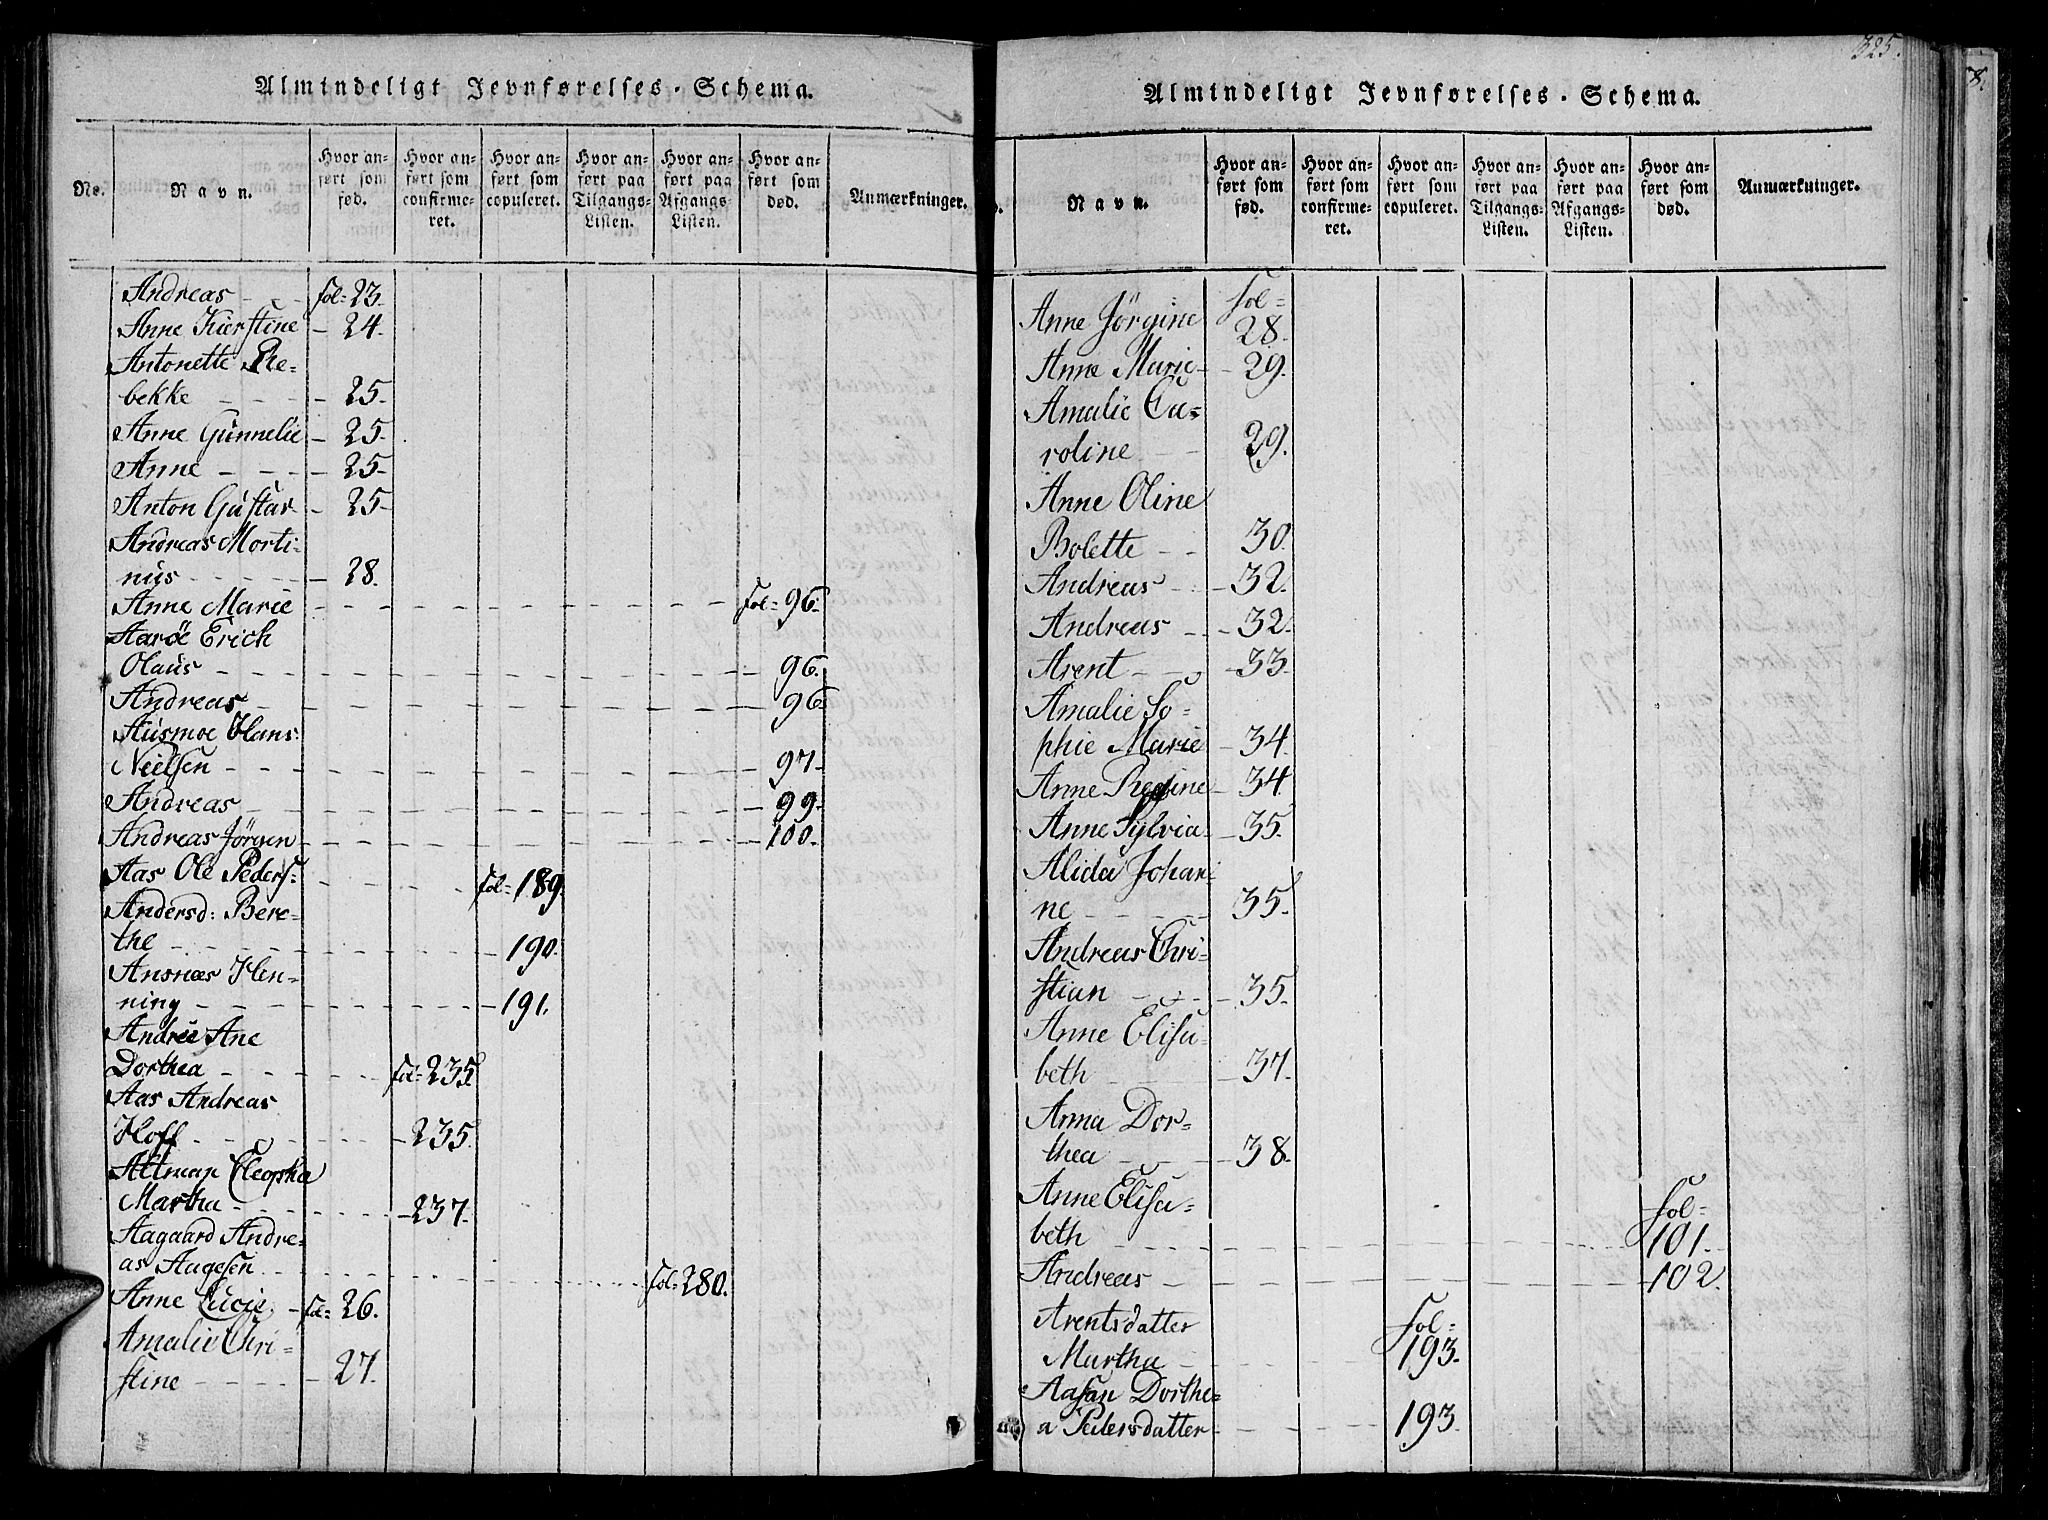 Almindeligt Jevnførelses-Schema.
No. Navn. Hvor anført som fød. Hvor anført som confirmeret. Hvor anført som copuleret. Hvor anført paa Tilgangs-Listen. Hvor anført paa Afgangs-Listen. Hvor anført som død. Anmærkninger.
Andreas - fol= 23.
Anne Kierstine - 24.
Antonette Re=
bekke - 25.
Anne Gunnelie - 25.
Anne - 25.
Anton Gustav - 25.
Andreas Morti=
nus - 28.
Anne Marie - fol= 96.
Aarøe Erich
Olaus - 96.
Andreas - 96
Ausmoe Hans
Nielsen - 97.
Andreas - 99.
Andreas Jörgen - 100.
Aas Ole Peders: - fol= 189.
Andersd: Bere=
the - 190.
Ansnæs Hen=
ning - 191.
Andrée Ane
Dorthea - fol= 235.
Aas Andreas
Hoff - 235.
Altman Cleopha
Martha - 237.
Aagaard Andre=
as Aagesen - fol= 280.
Anne Lucie - fol= 26.
Amalie Chri=
stine - 27.
325.
Almindeligt Jevnførelses-Schema.
Navn. Hvor anført som fød. Hvor anført som confirmeret. Hvor anført som copuleret. Hvor anført paa Tilgangs-Listen. Hvor anført paa Afgangs-Listen. Hvor anført som død. Anmærkninger.
Anne Jörgine fol= 28.
Anne Marie - 29.
Amalie Ca=
roline - 29.
Anne Oline
Bolette - 30.
Andreas - 32.
Andreas - 32.
Arent - 33.
Amalie So=
phie Marie - 34.
Anne Regine - 34
Anne Sylvia - 35.
Alida Johan=
ne - 35.
Andreas Chri=
stian - 35.
Anne Elisa=
beth - 37.
Anna Dor=
thea - 38.
Anne Elisa=
beth - fol= 101.
Andreas - 102.
Arentsdatter
Martha - fol= 193.
Aasan Dorthe=
a Pedersdatter - 193.